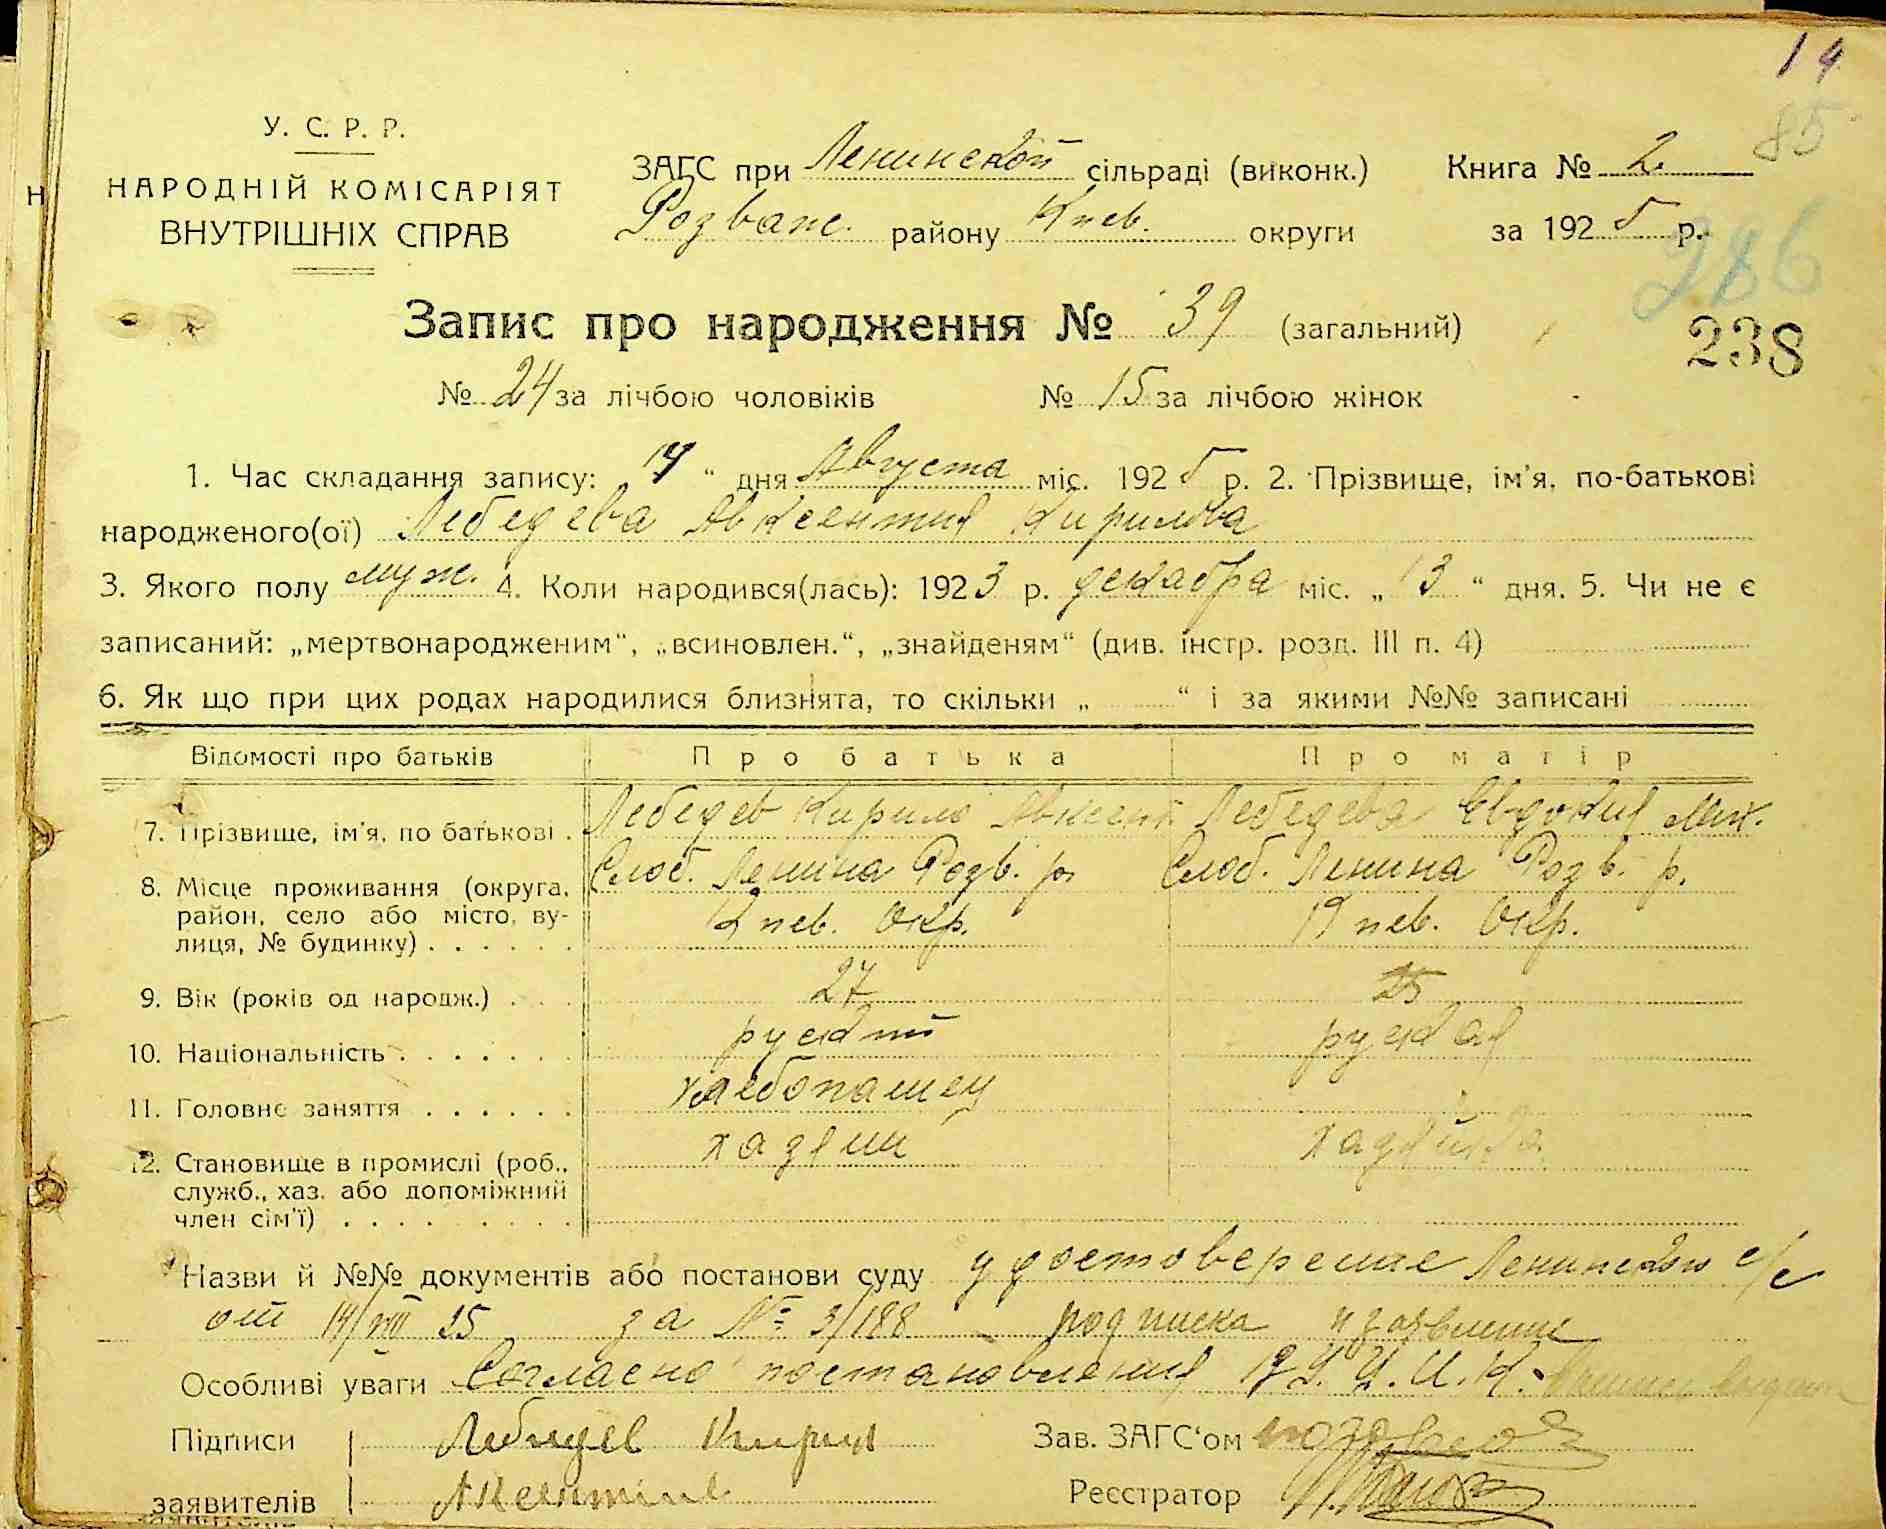 14
85
У. С. Р. Р.
НАРОДНІЙ КОМІСАРІЯТ
ВНУТРІШНІХ СПРАВ
ЗАГС при Ленинской сільраді (виконк.) Книга № 2
Розваж. району Киев. округи за 1925 р.
286
Запис про народження № 39 (загальний)
238
№ 24 за лічбою чоловіків № 15 за лічбою жінок
1. Час складання запису: 14 " дня Августа міс. 1925 р. 2. Прізвище, ім'я, по-батькові
народженого(ої) Лебедева Авксентия Кирилова
3. Якого полу муж. 4. Коли народився(лась): 1923 р. декабря міс. „ 13 " дня. 5. Чи не є
записаний: „мертвонародженим", „всиновлен.", „знайденям" (див. інстр. розд. III п. 4)
6. Як що при цих родах народилися близнята, то скільки „ " і за якими №№ записані
Відомості про батьків Про батька Про матір
7. Прізвище, ім'я, по батькові . Лебедев Кирило Авксент Лебедева Евдокия Мих.
8. Місце проживання (округа, Слоб. Ленина Розв. р. Слоб. Ленина Розв. р.
район, село або місто, ву-
лиця, № будинку) . . . . . . Киев. Окр. Киев. Окр.
9. Вік (років од народж.) . . . 27 25
10. Національність . . . . . . . руский руская
11. Головне заняття . . . . . . хлебопашец
12. Становище в промислі (роб., хазяин хазяйка
служб., хаз. або допоміжний
член сім'ї) . . . . . . . . .
Назви й №№ документів або постанови суду удостоверение Ленинского с/с
от 14/VIII 25 за № 3/188 подписка и заявление
Особливі уваги Согласно постановления ВУ.Ц.И.К.
Підписи Лебедев Кирил Зав. ЗАГС'ом
заявителів Реєстратор